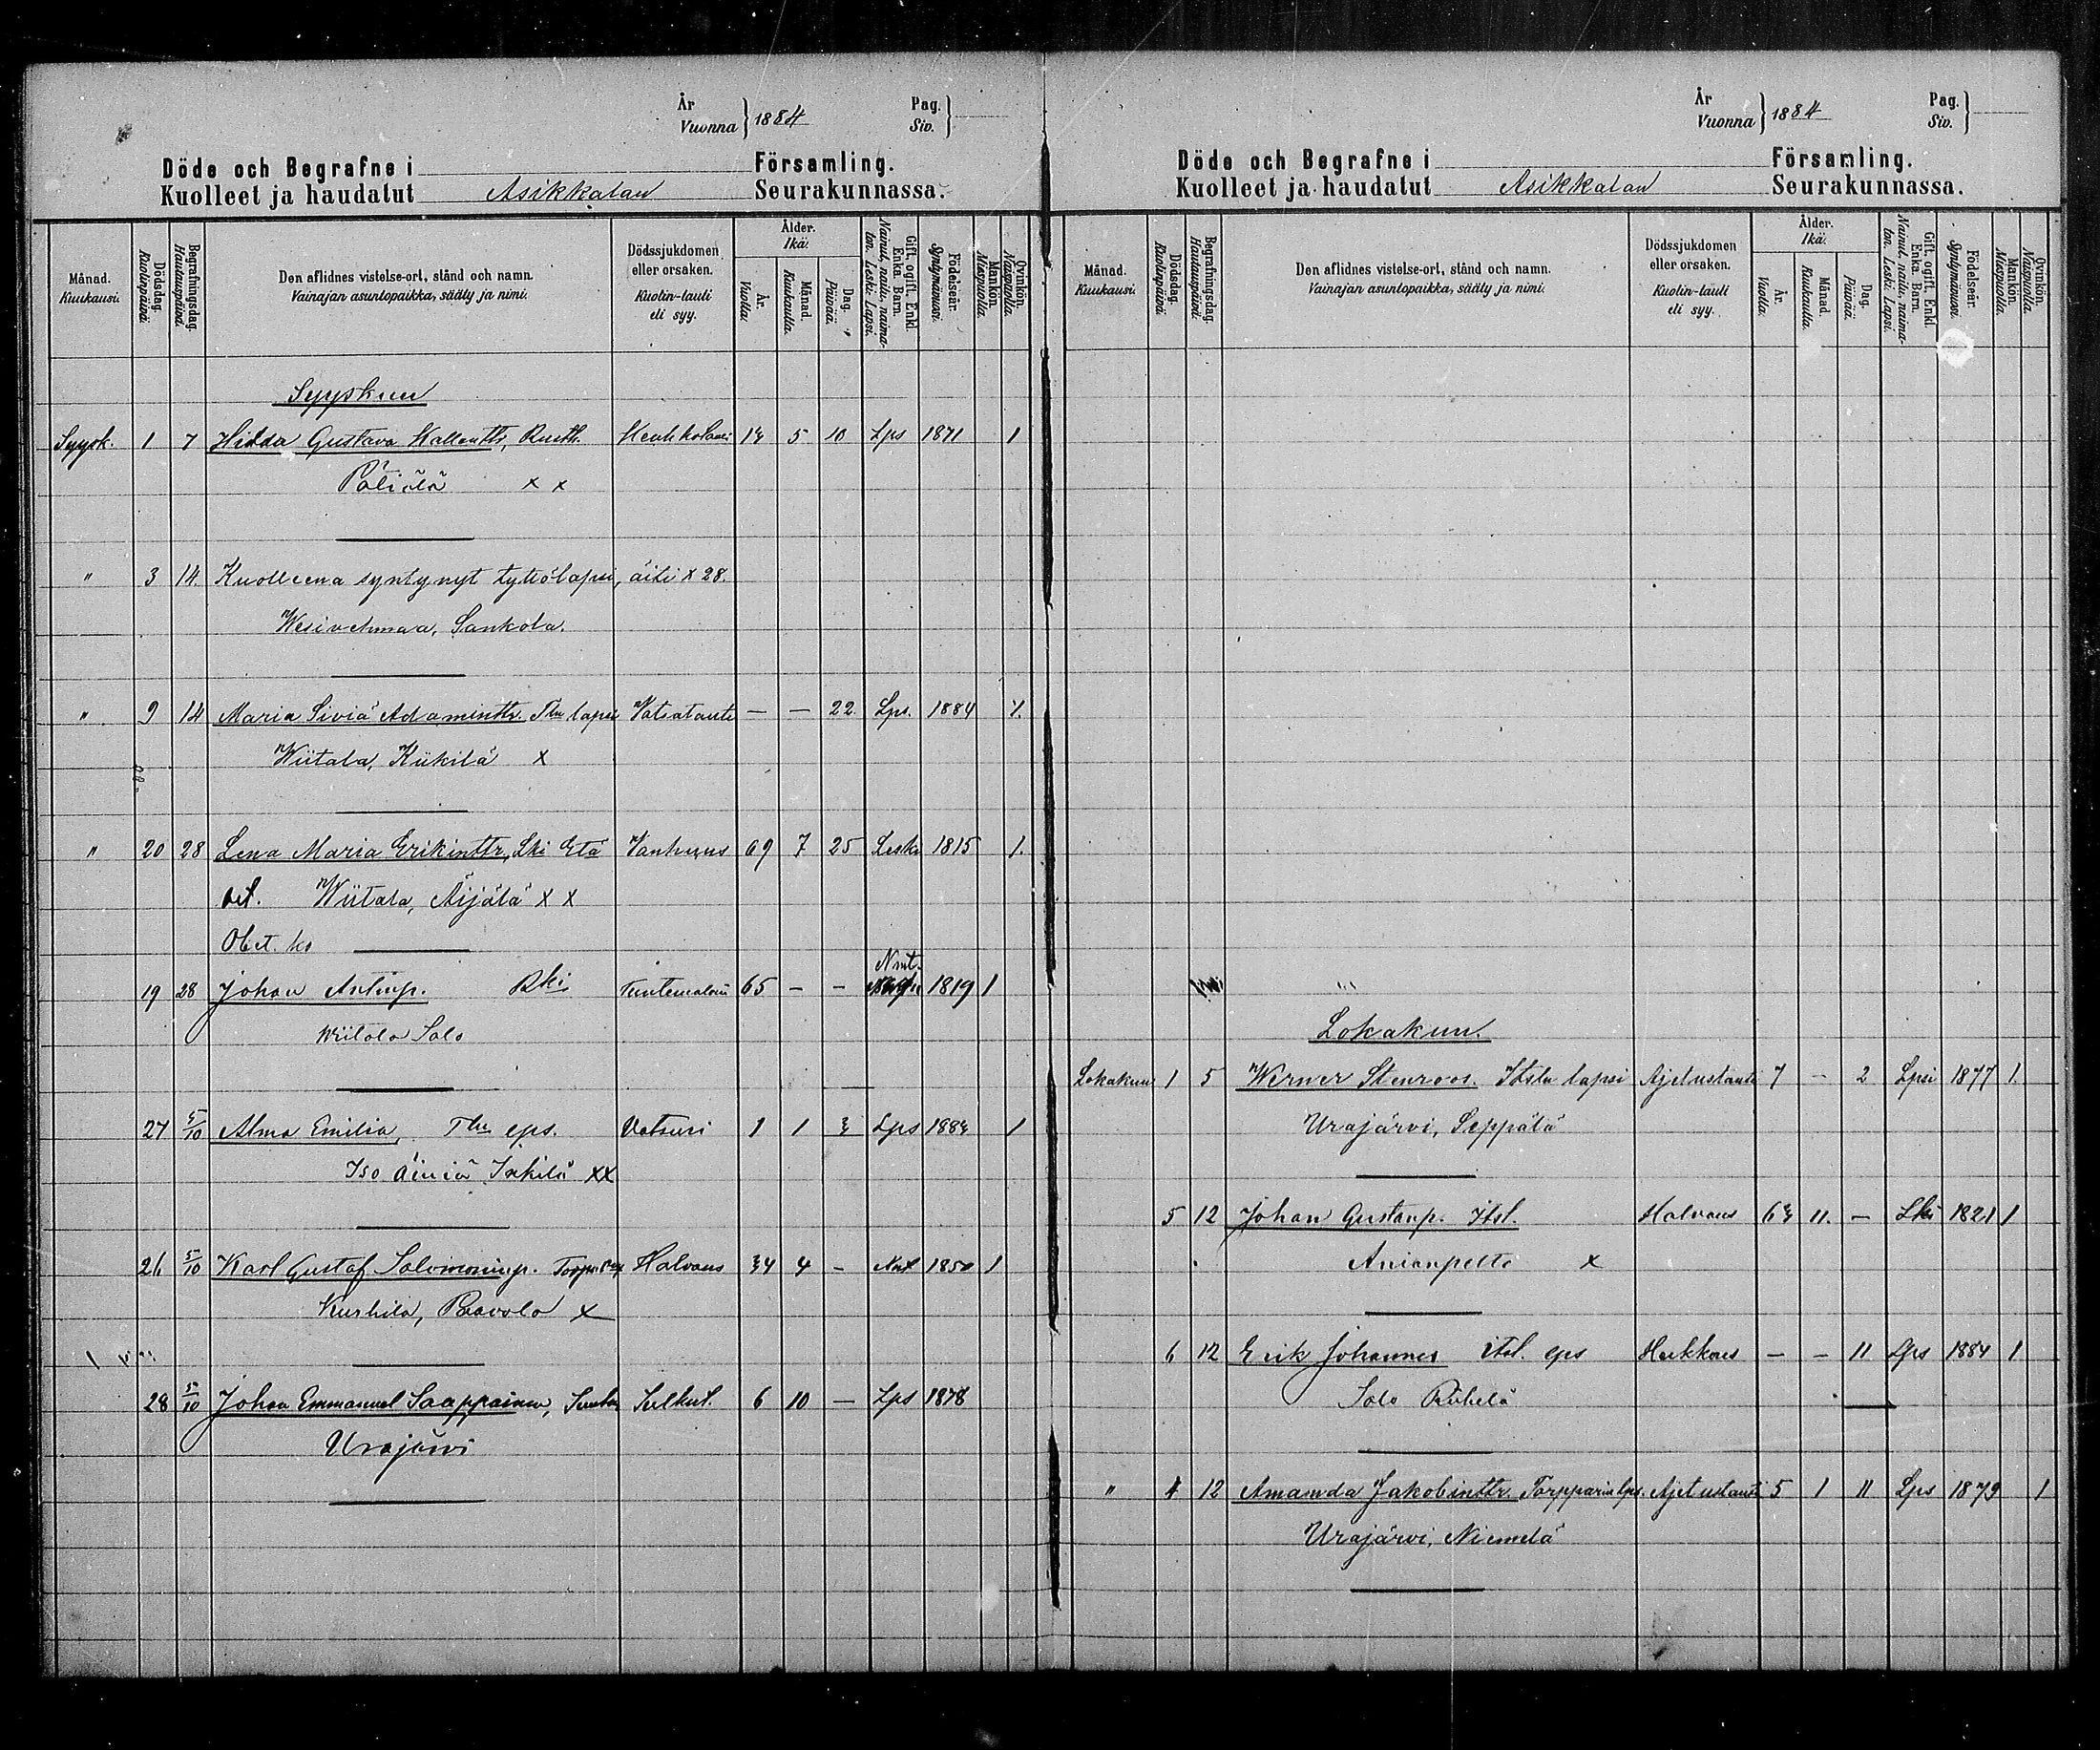 År
Vuonna } 1884 Pag.
Siv. }
Döde och Begrafne i Församling.
Kuolleet ja haudatut Asikkalan Seurakunnassa.
Månad. Kuukausi. Dödsdag. Kuolinpäivä. Begrafningsdag. Hautauspäivä. Den aflidnes vistelse-ort, stånd och namn. Vainajan asuntopaikka, sääty ja nimi. Dödssjukdomen eller orsaken. Kuolin-tauti eli syy. Ålder. Ikä. År. Vuotta. Månad. Kuukautta. Dag. Päivää. Gift, ogift. Enkl. Enka. Barn. Nainut, naitu, naimaton. Leski. Lapsi. Födelseår. Syntymävuosi. Mankön. Miespuolia. Qvinkön. Naispuolia.
Syyskuu
Syysk. 1 7 Hilda Gustava Kallenttr, 5 10 Lps 1871 1
x x
" 3 14. Kuolleena syntynyt tyttölapsi, äiti x 28.
Wesivehmaa, Sankola.
" 9 14 Maria Siviä Adaminttr. lapsi Vatsatauti — — 22 Lps. 1884 1.
Wiitala, Kiikilä x
" 20 28 Lena Maria Erikinttr, Lki Vanhuus 69 7 25 Leski 1815 1.
Wiitala, Äijälä x x
19 28 Johan Antinp. Tuntematoin 65 - - Nnt. 1819 1
Wiitala Salo
27 5/10 Alma Emilia, 1 1 3 Lps 1883 1
Iso Äiniä xx
26 5/10 Karl Gustaf Salomoninp. Halvaus 34 4 - 1850 1
Kurhila, Paavola x
28 5/10 Johan Emmanuel Saappainen, 6 10 — Lps 1878
Urajärvi
År
Vuonna } 1884 Pag.
Siv. }
Döde och Begrafne i Församling.
Kuolleet ja haudatut Asikkalan Seurakunnassa.
Månad. Kuukausi. Dödsdag. Kuolinpäivä. Begrafningsdag. Hautauspäivä. Den aflidnes vistelse-ort, stånd och namn. Vainajan asuntopaikka, sääty ja nimi. Dödssjukdomen eller orsaken. Kuolin-tauti eli syy. Ålder. Ikä. År. Vuotta. Månad. Kuukautta. Dag. Päivää. Gift, ogift. Enkl. Enka. Barn. Nainut, naitu, naimaton. Leski. Lapsi. Födelseår. Syntymävuosi. Mankön. Miespuolia. Qvinkön. Naispuolia.
Lokakuu.
Lokakuu 1 5 Werner Stenroos. Itsln lapsi Ajetustauti 7 — 2 Lpsi 1877 1.
Urajärvi, Seppälä
5 12 Johan Gustavp. Itsl. Halvaus 63 11. — Lki 1821 1
Anianpelto x
6 12 Erik Johannes itsl. Heikkous — — 11 Lps 1884 1
Salo Riihelä
" 4 12 Amanda Jakobinttr. Torpparin lps. Ajetustauti 5 1 11 Lps 1879 1
Urajärvi, Niemelä